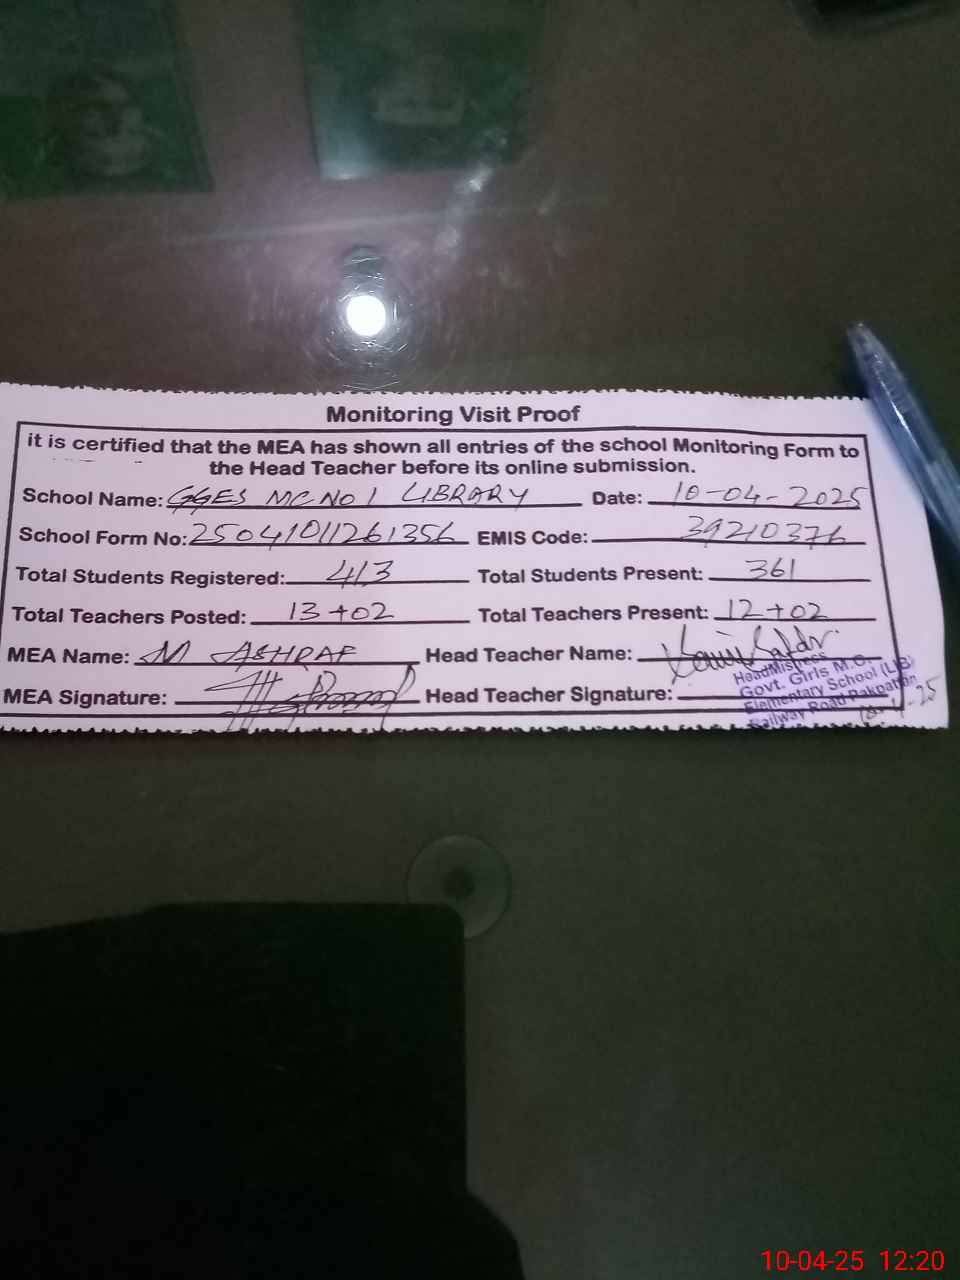 Monitoring Visit Proof
it is certified that the MEA has shown all entries of the school Monitoring Form to
the Head Teacher before its online submission.
School Name: GGES MC NO 1 LIBRARY Date: 10-04-2025
School Form No: 25041011261356 EMIS Code: 39210376
Total Students Registered: 413 Total Students Present: 361
Total Teachers Posted: 13+02 Total Teachers Present: 12+02
MEA Name: M ASHRAF Head Teacher Name:
MEA Signature: Head Teacher Signature:
HeadMistress
Govt. Girls M.C.
Elementary School (LIB)
Railway Road Pakpattan
10-04-25 12:20